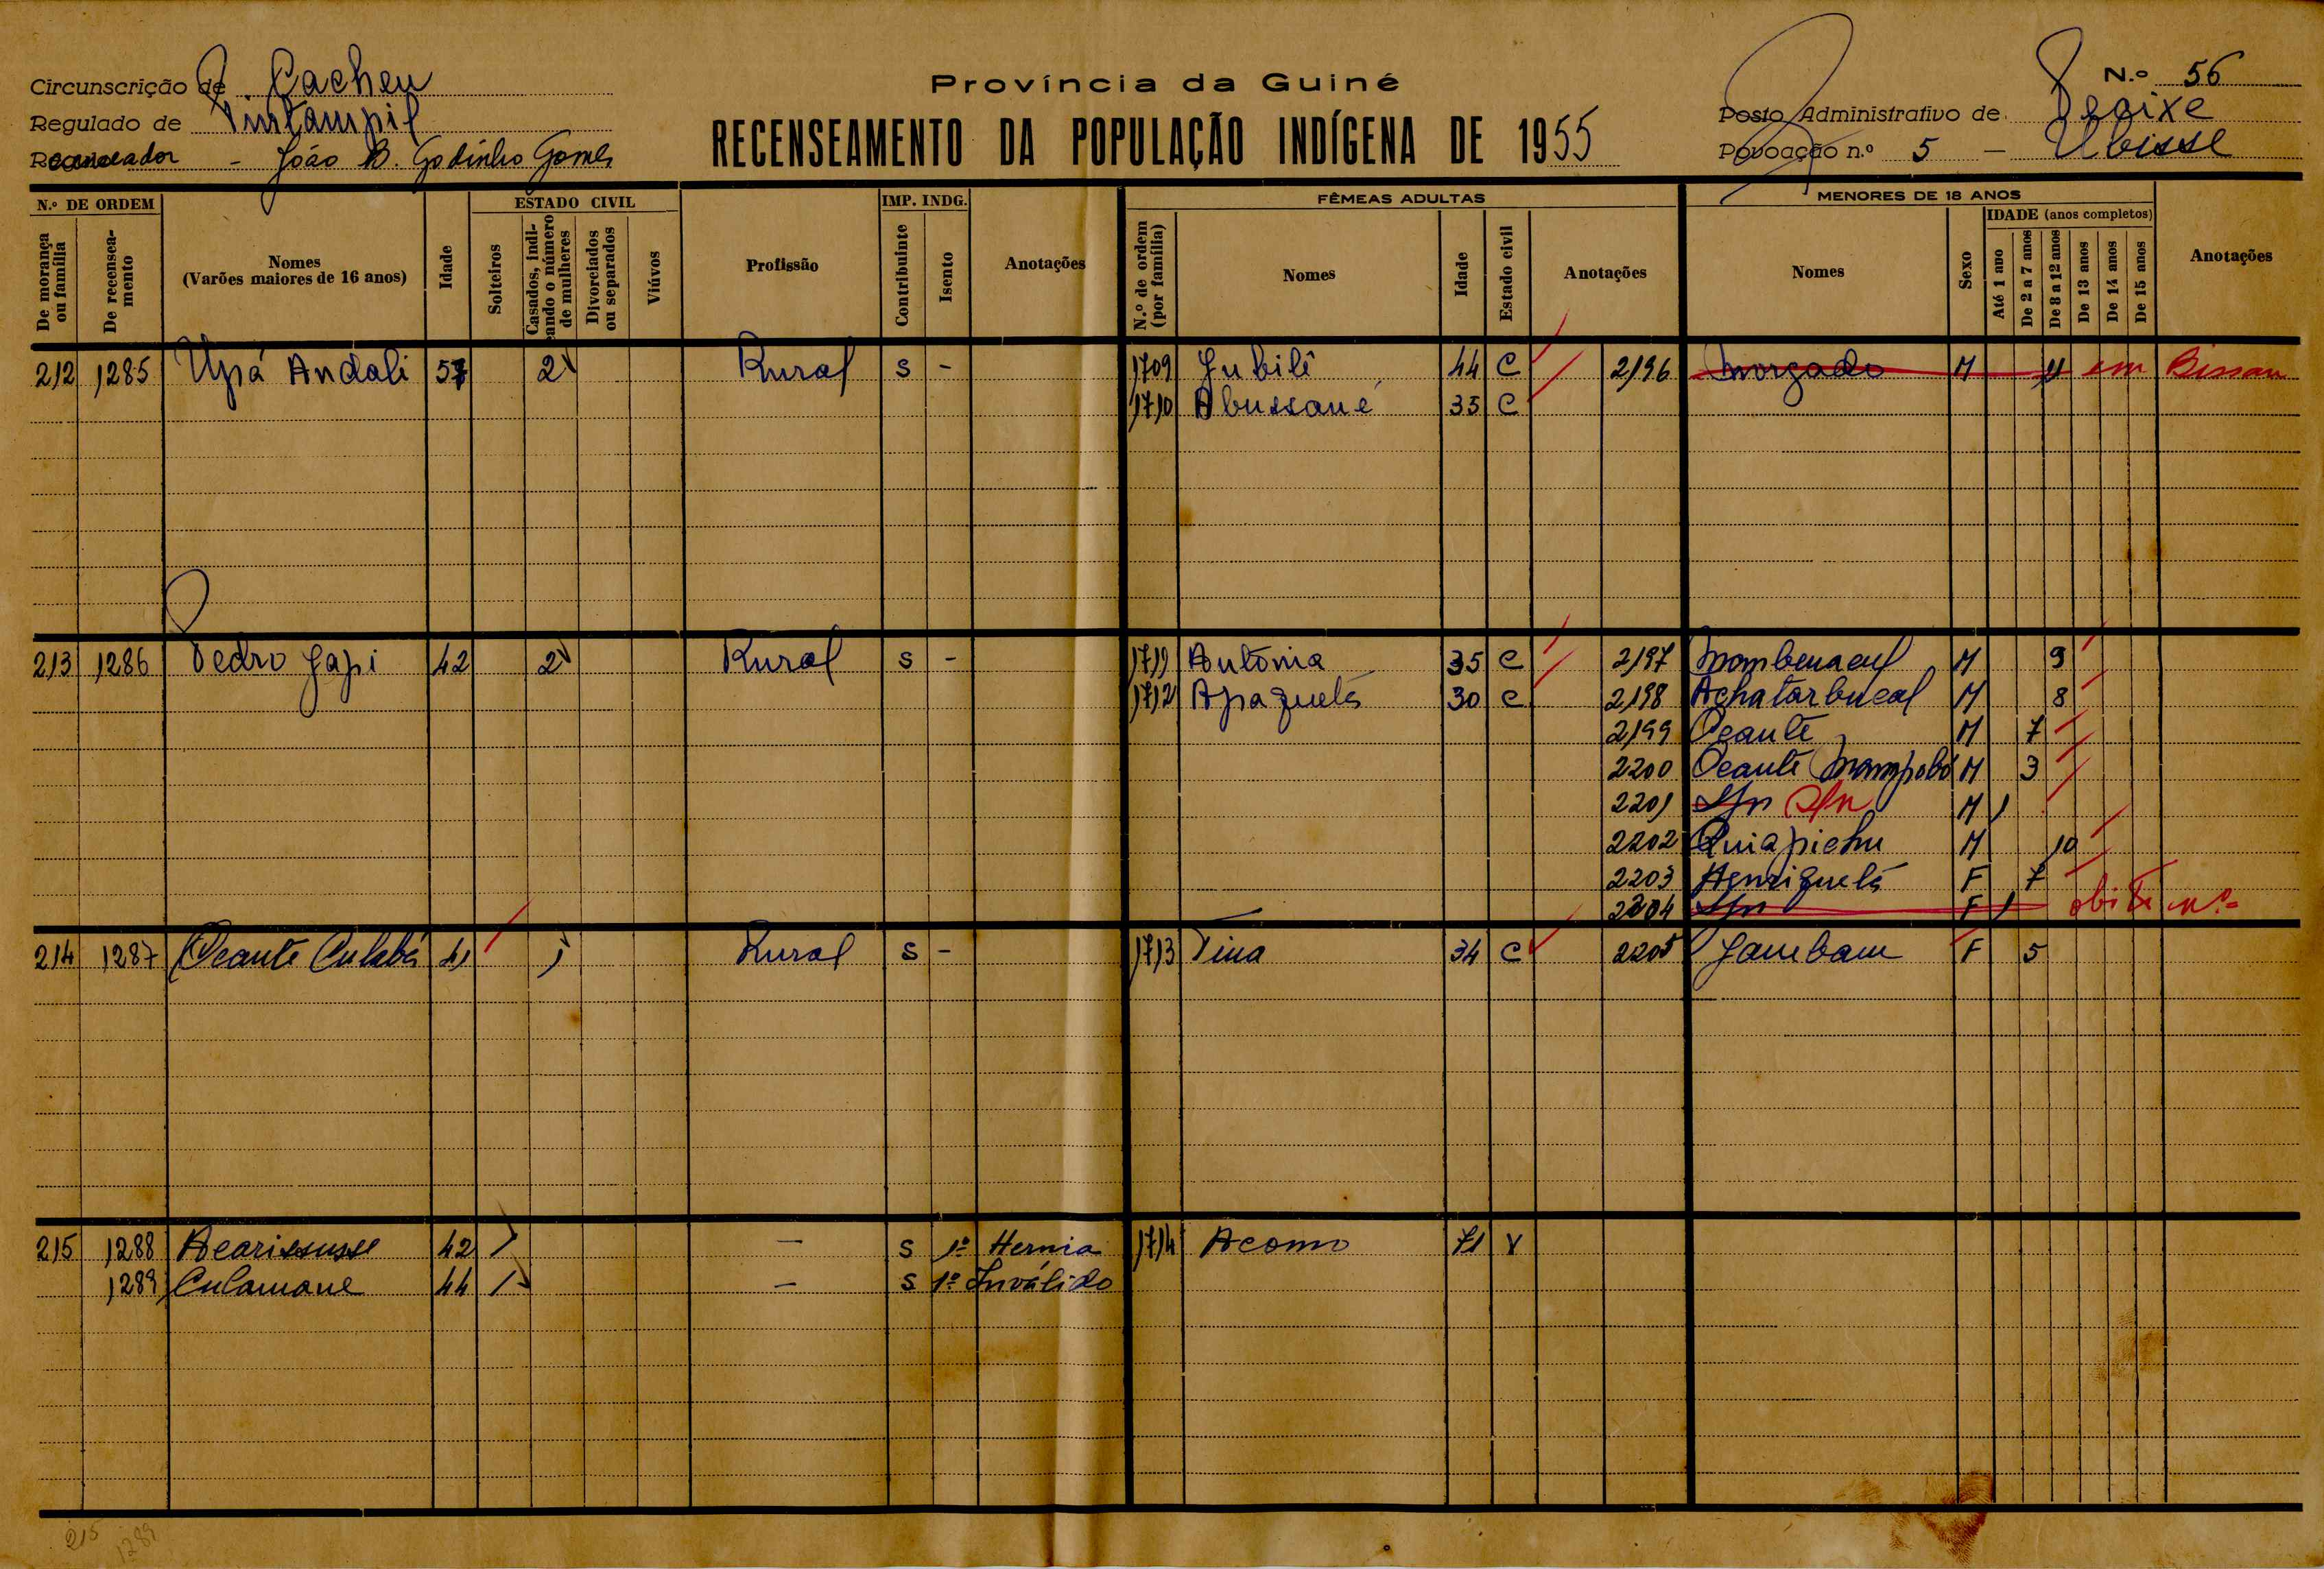 Circunscrição de Cacheu
Regulado de Pintampil
Recenseador - João B. Godinho Gomes
Província da Guiné
RECENSEAMENTO DA POPULAÇÃO INDÍGENA DE 1955
N.º 56
Posto Administrativo de
Povoação n.º 5 - Ubisse
N.º DE ORDEM
De morança ou família
De recenseamento
Nomes
(Varões maiores de 16 anos)
Idade
ESTADO CIVIL
Solteiros
Casados, indicando o número de mulheres
Divorciados ou separados
Viúvos
Profissão
IMP. INDG.
Contribuinte
Isento
Anotações
FÊMEAS ADULTAS
N.º de ordem (por família)
Nomes
Idade
Estado civil
Anotações
MENORES DE 18 ANOS
Nomes
Sexo
IDADE (anos completos)
Até 1 ano
De 2 a 7 anos
De 8 a 12 anos
De 13 anos
De 14 anos
De 15 anos
Anotações
212 1285 Upá Andali 57 2 Rural S - 1709 Jubilê 44 C 2196 Morgado M 11 em Bissau
1710 Abussané 35 C
213 1286 Pedro Japi 42 2 Rural S - 1711 Antónia 35 C 2197 M 9
1712 Apaquetá 30 C 2198 Achatarbucal M 8
2199 Ocante M 7
2200 Ocante Mampobó M 3
2201 S/n S/n M 1
2202 Quiapichu M 10
2203 Henriqueta F 7
2204 S/n F 1 obito n.º
214 1287 Ocante Culabá 41 1 Rural S - 1713 Tina 34 C 2205 Jambam F 5
215 1288 Acarissusse 42 1 - S 1º Hernia 1714 Acomo 71 V
1289 Culamane 44 1 - S 1º Inválido
215 1289